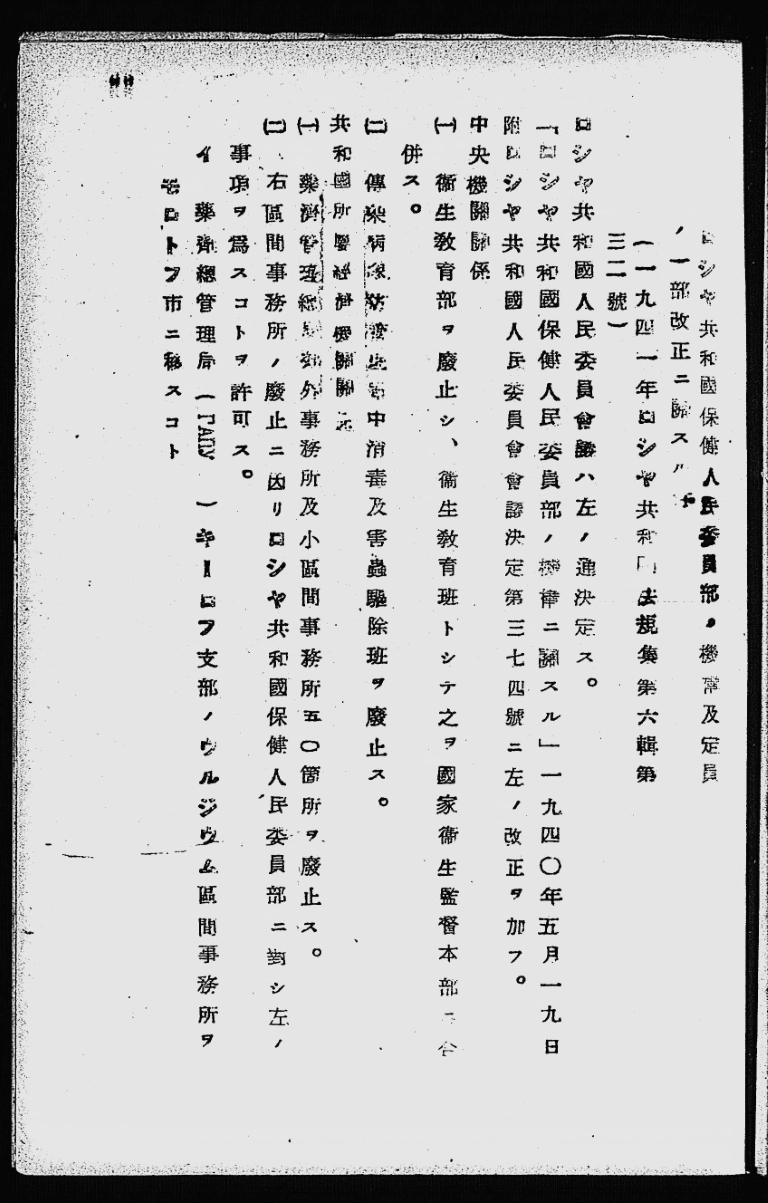 ロシヤ共和國保健人民委員部ノ機構及定員
ノ一部改正ニ關スル件
(一九四一年ロシヤ共和國法規集第六輯第
三二號)
ロシヤ共和國人民委員會議ハ左ノ通決定ス。
「ロシヤ共和國保健人民委員部ノ機構ニ關スル」一九四〇年五月一九日
附ロシヤ共和國人民委員會會議決定第三七四號ニ左ノ改正ヲ加フ。
中央機關關係
(一) 衞生敎育部ヲ廢止シ、衞生敎育班トシテ之ヲ國家衞生監督本部ニ合
併ス。
(二) 傳染病豫防 中消毒及害蟲驅除班ヲ廢止ス。
共和國所屬經濟機關關係
(一) 藥濟管理總局郊外事務所及小區間事務所五〇箇所ヲ廢止ス。
(二) 右區間事務所ノ廢止ニ因リロシヤ共和國保健人民委員部ニ對シ左ノ
事項ヲ爲スコトヲ許可ス。
イ 藥濟總管理局( )キーロフ支部ノウルジウム區間事務所ヲ
モロトフ市ニ移スコト